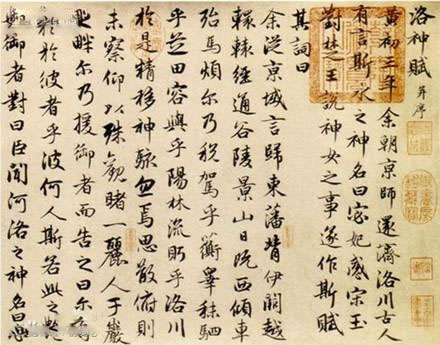 洛神賦 并序
黃初三年余朝京師還濟洛川古人
有言斯水之神名曰宓妃感宋玉
對楚王說神女之事遂作斯賦
其詞曰
余從京域言歸東藩背伊闕越
轘轅經通谷陵景山日既西傾車
殆馬煩尔乃稅駕乎蘅皋秣駟
乎芝田容與乎陽林流眄乎洛川
於是精移神駭忽焉思散俯則
未察仰以殊觀睹一麗人于巖
之畔尔乃援御者而告之曰尔有
於彼者乎彼何人斯若此之艷
御者對曰臣聞河洛之神名曰宓